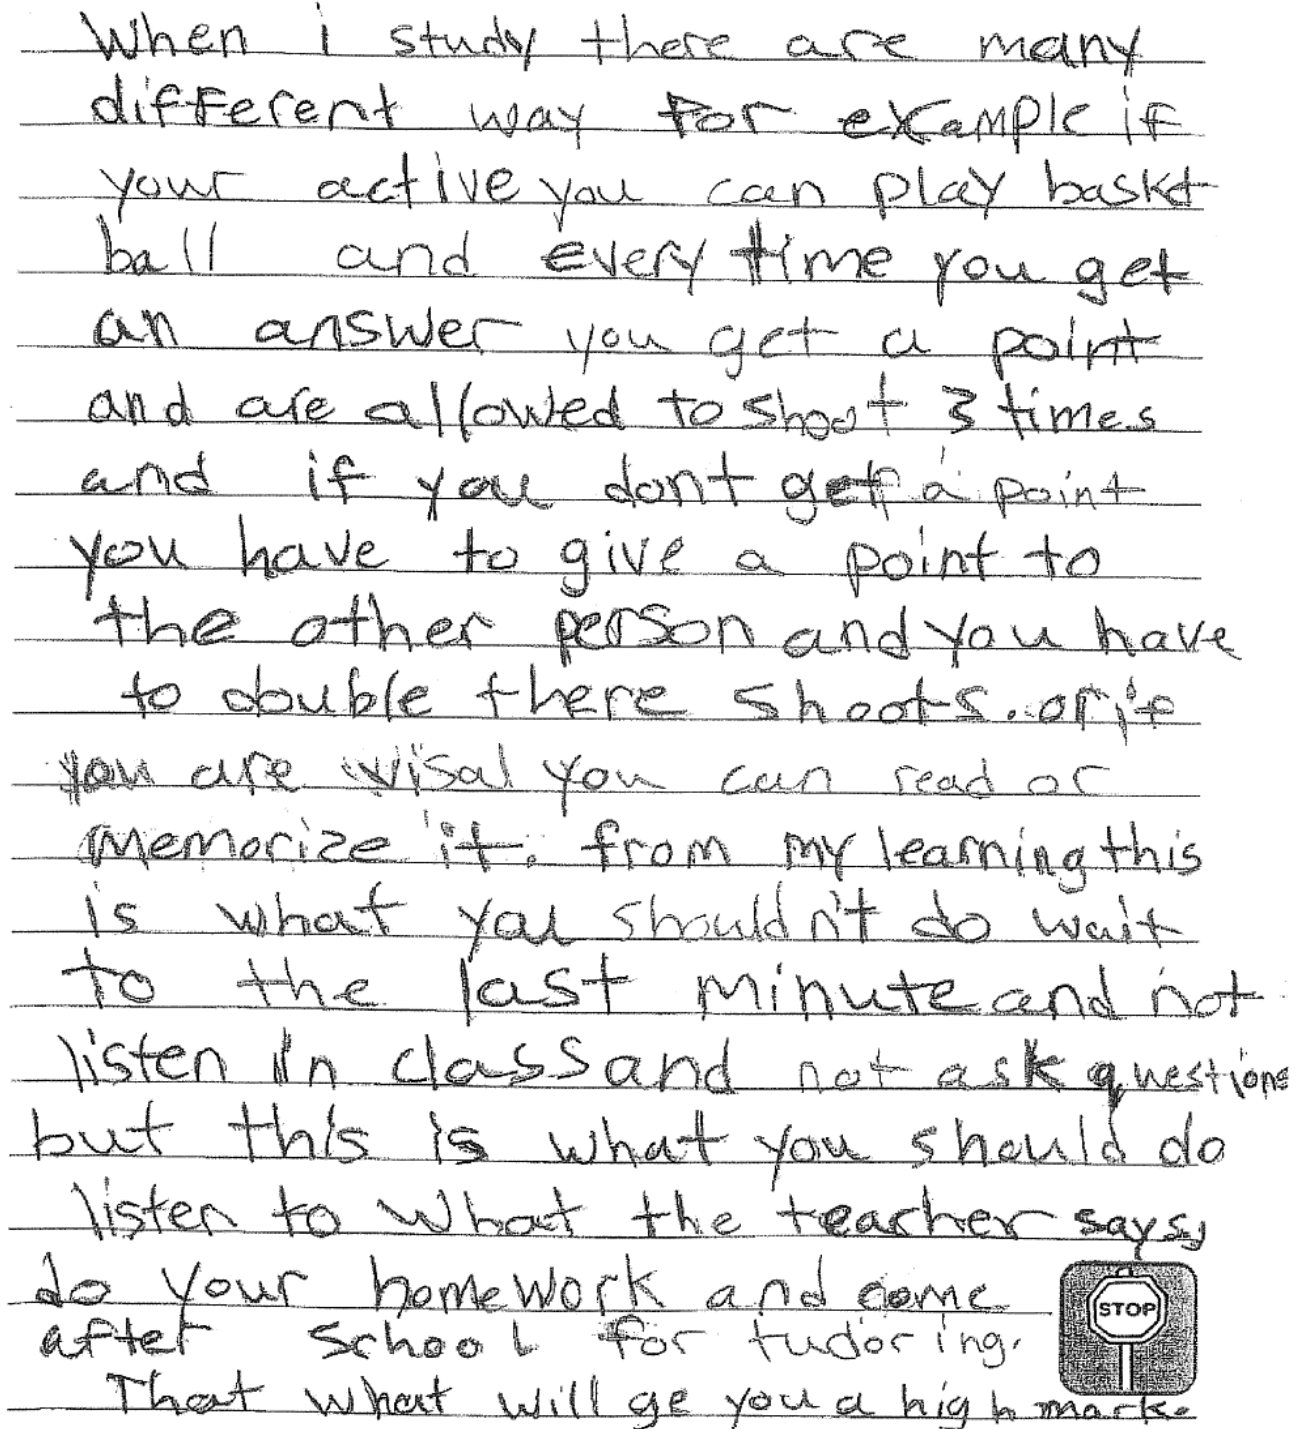 When i study there are many
different way for example if
your active you can play baskt
ball and every time you get
an answer you get a point
and are allowed to shoot 3 times
and if you dont get a point
you have to give a point to
the other person and you have
to double there shoots. or if
you are visal you can read or
memorize it. from my learning this
is what you shouldn't do wait
to the last minute and not
listen in class and not ask questions
but this is what you should do
listen to what the teacher says,
do your homework and come
after school for tudoring.
STOP
That what will ge you a high mark.